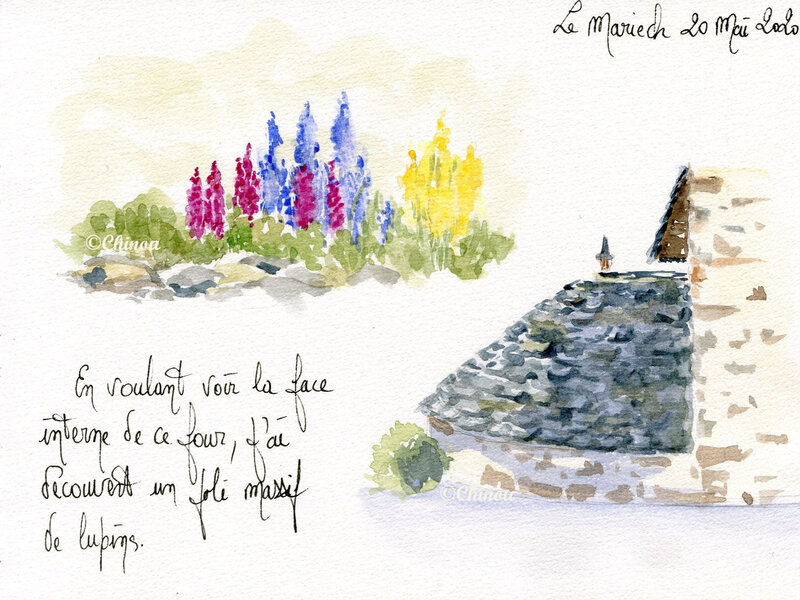 Le Mariech 20 Mai 2020
©Chinoa
En voulant voir la face
interne de ce four, j'ai
découvert un joli massif
de lupins.
©Chinoa